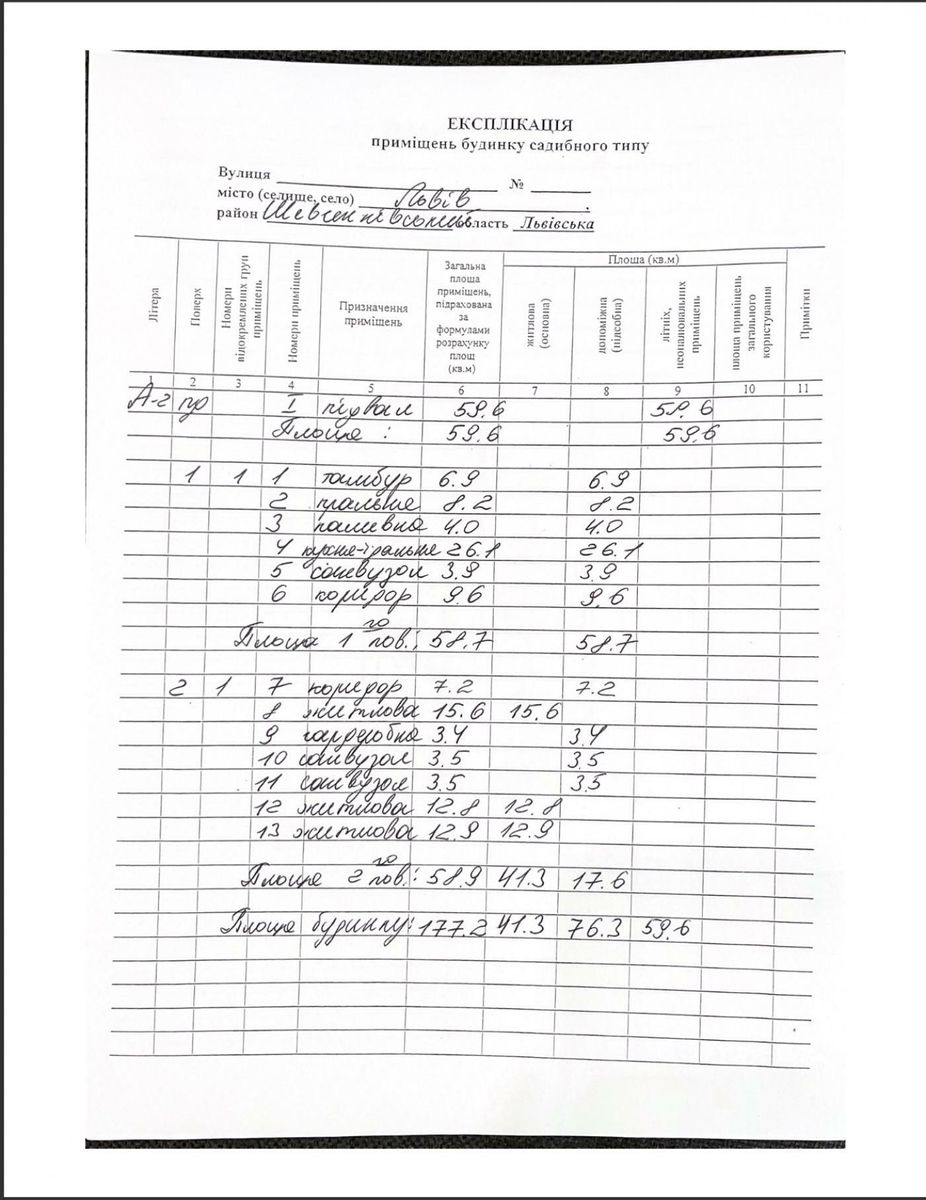 ЕКСПЛІКАЦІЯ
приміщень будинку садибного типу
Вулиця № 
місто (селище, село) Львів .
район Шевченківський область Львівська
Літера Поверх Номери відокремлених груп приміщень Номери приміщень Призначення приміщень Загальна площа приміщень, підрахована за формулами розрахунку площ (кв.м) Площа (кв.м) житлова (основна) допоміжна (підсобна) літніх, неопалювальних приміщень площа приміщень загального користування Примітки
1 2 3 4 5 6 7 8 9 10 11
А-2 пд І підвал 59.6 59.6
Площа : 59.6 59.6
1 1 1 тамбур 6.9 6.9
2 пральня 8.2 8.2
3 паливна 4.0 4.0
4 кухня-їдальня 26.1 26.1
5 санвузол 3.9 3.9
6 коридор 9.6 9.6
Площа 1го пов.: 58.7 58.7
2 1 7 коридор 7.2 7.2
8 житлова 15.6 15.6
9 гардеробна 3.4 3.4
10 санвузол 3.5 3.5
11 санвузол 3.5 3.5
12 житлова 12.8 12.8
13 житлова 12.9 12.9
Площа 2го пов.: 58.9 41.3 17.6
Площа будинку: 177.2 41.3 76.3 59.6